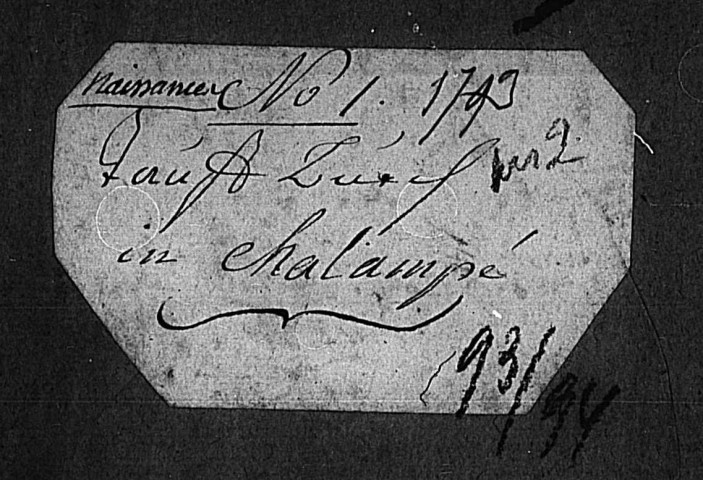 naissances No 1. 1793
Tauff Buch
in Chalampé
93/94